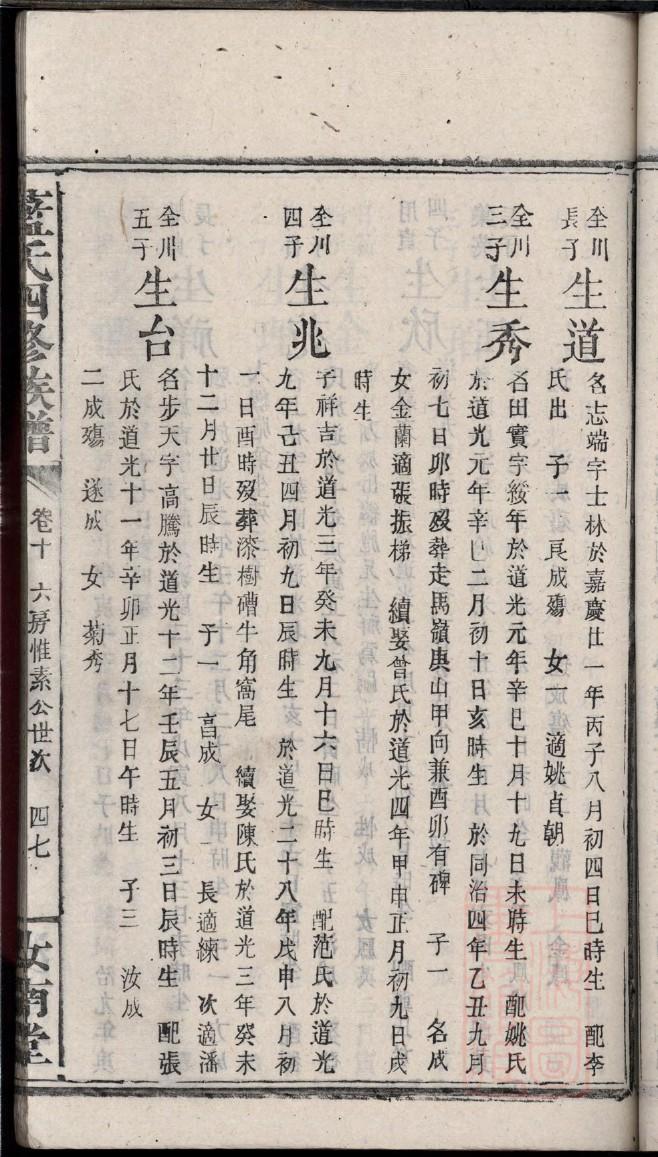 全川長子 生道 名志端字士林於嘉慶廿一年丙子八月初四日巳時生 配李
氏出 子一 良成殤 女一 適姚貞朝
全川三子 生秀 名田實字綏年於道光元年辛巳十月十九日未時生 配姚氏
於道光元年辛巳二月初十日亥時生 於同治四年乙丑九月
初七日卯時歿葬走馬嶺庚山甲向兼酉卯有碑 子一 名成
女金蘭適張振梯 續娶曾氏於道光四年甲申正月初九日戌
時生
全川四子 生兆 字祥吉於道光三年癸未九月十六日巳時生 配范氏於道光
九年己丑四月初九日辰時生 於道光二十八年戊申八月初
一日酉時歿葬漆樹磳牛角窩尾 續娶陳氏於道光三年癸未
十二月廿日辰時生 子一 昌成 女一 長適練 次適潘
全川五子 生台 名步天字高騰於道光十二年壬辰五月初三日辰時生 配張
氏於道光十一年辛卯正月十七日午時生 子三 汝成
二成殤 遂成 女 菊秀
藍氏四修族譜 卷十 六房惟素公世次 四七 汝南堂